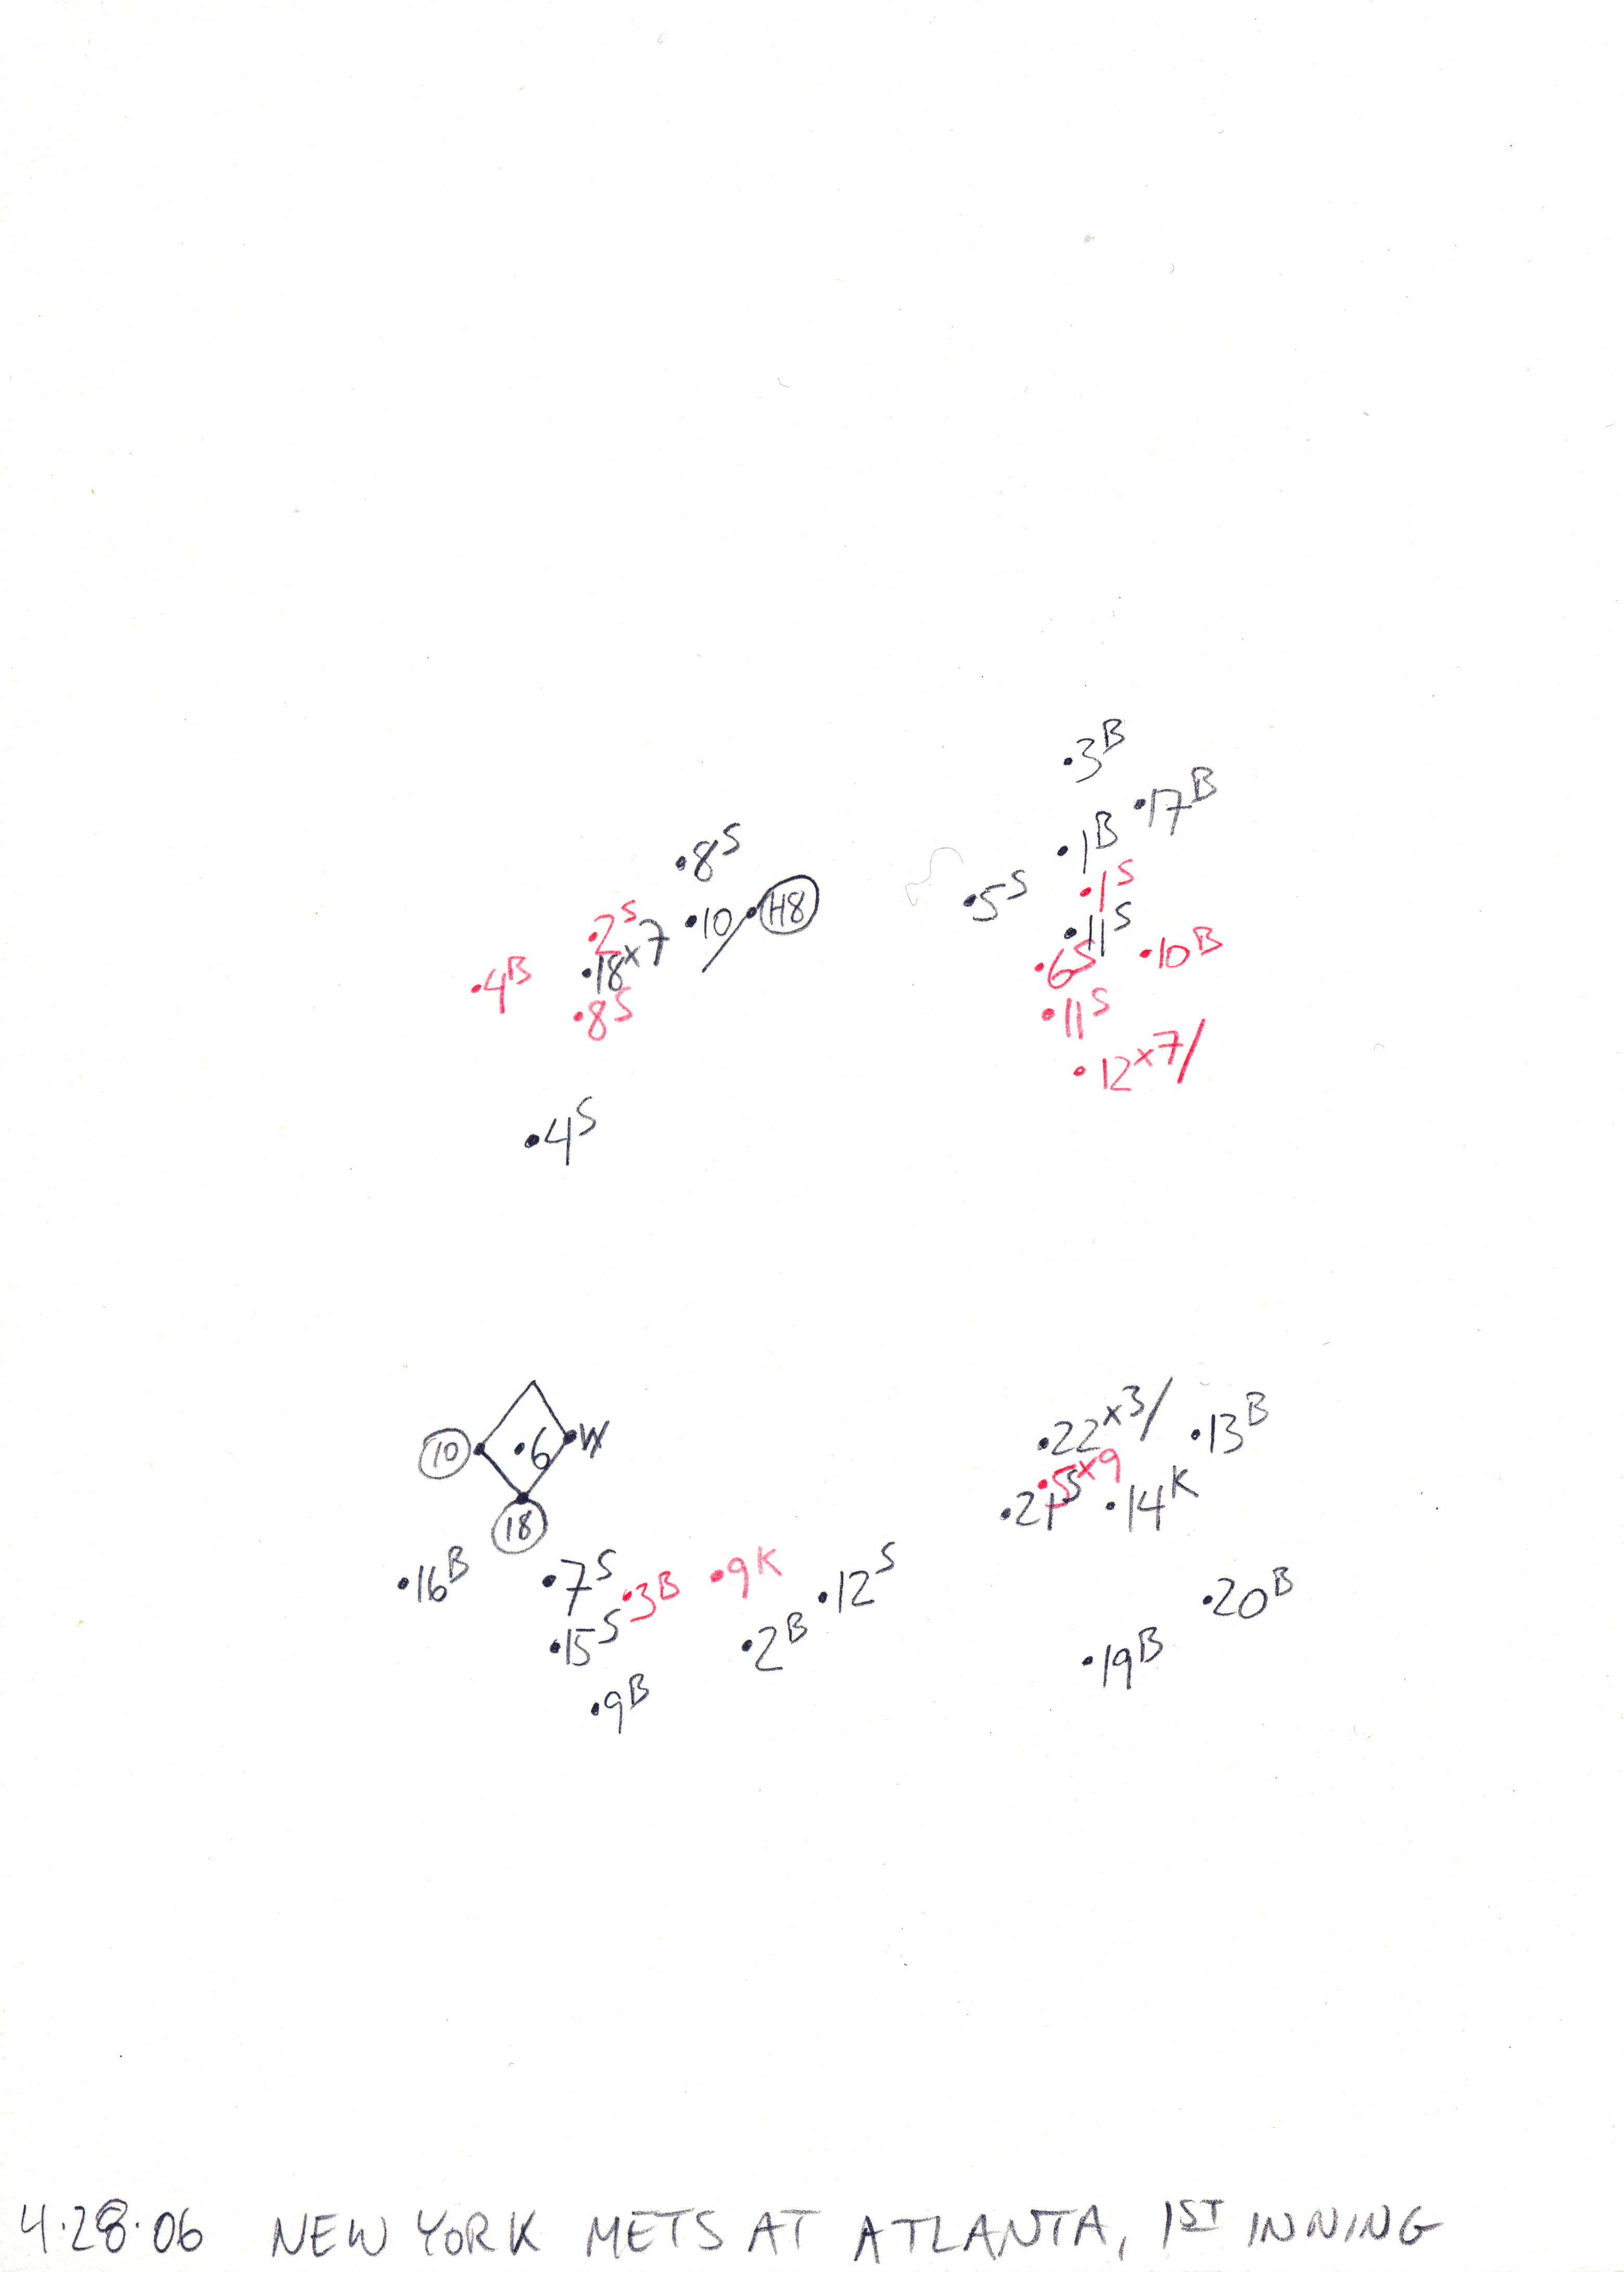 .3B
.17B
.8S
.1B
.1S
.5S
.10
H8
.11S
.2S
.18x7
.6S
.10B
.4B
.8S
.11S
.12x7/
.4S
.22x3/
.13B
10
.6
W
.5x9
.21S
.14K
18
.16B
.7S
.3B
.9K
.12S
.20B
.15S
.2B
.19B
.9B
4.28.06 NEW YORK METS AT ATLANTA, 1ST INNING